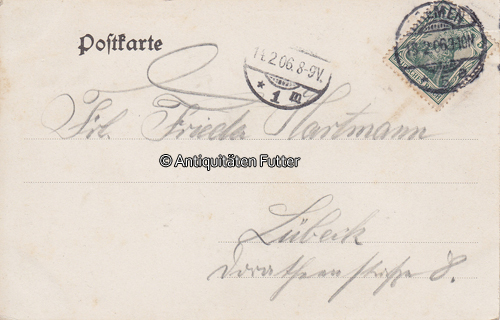 Postkarte
14.2.06.8-9V.
* 1 m
BREMEN
13.2.06.3-10N
Frl. Frieda Hartmann
© Antiquitäten Futter
Lübeck
Dorotheenstraße 8.